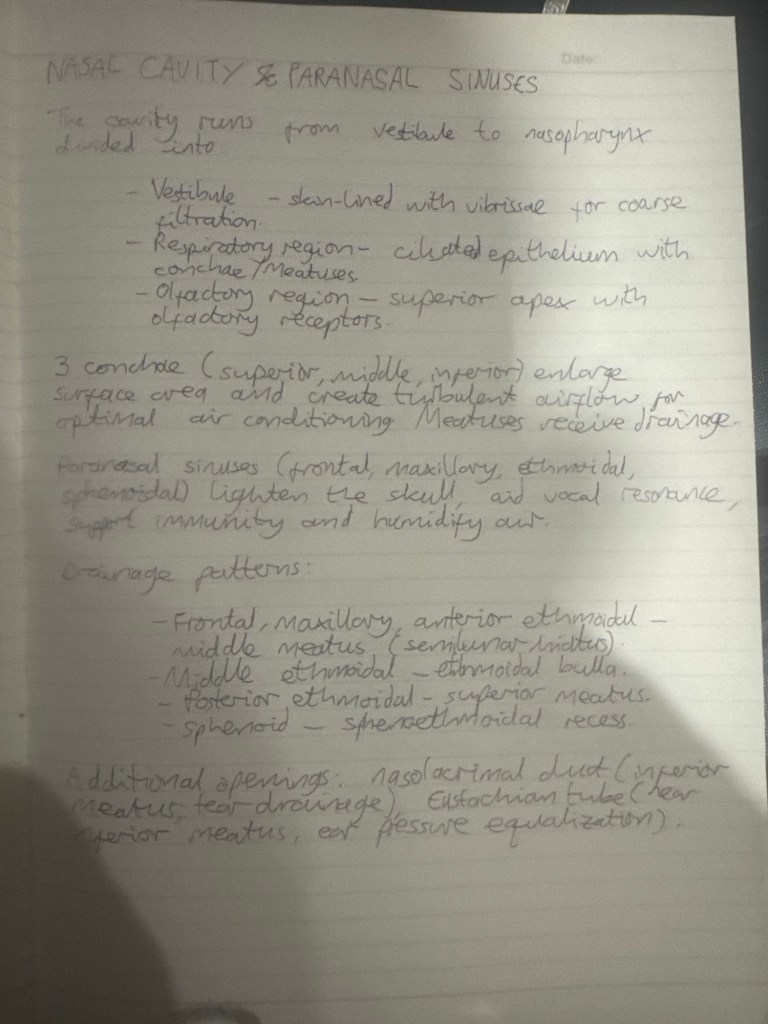 Date
NASAL CAVITY & PARANASAL SINUSES
The cavity runs from vestibule to nasopharynx
divided into
- Vestibule - skin-lined with vibrissae for coarse
filtration.
- Respiratory region - ciliated epithelium with
conchae/Meatuses.
- Olfactory region - superior apex with
olfactory receptors.
3 conchae (superior, middle, inferior) enlarge
surface area and create turbulent airflow for
optimal air conditioning Meatuses receive drainage.
Paranasal sinuses (frontal, maxillary, ethmoidal,
sphenoidal) lighten the skull, aid vocal resonance,
support immunity and humidify air.
Drainage patterns:
- Frontal, Maxillary, anterior ethmoidal -
middle meatus (semilunar hiatus).
- Middle ethmoidal - ethmoidal bulla.
- Posterior ethmoidal - superior meatus.
- sphenoid - sphenoethmoidal recess.
Additional openings: nasolacrimal duct (inferior
meatus, tear drainage) Eustachian tube (near
inferior meatus, ear pressure equalization).